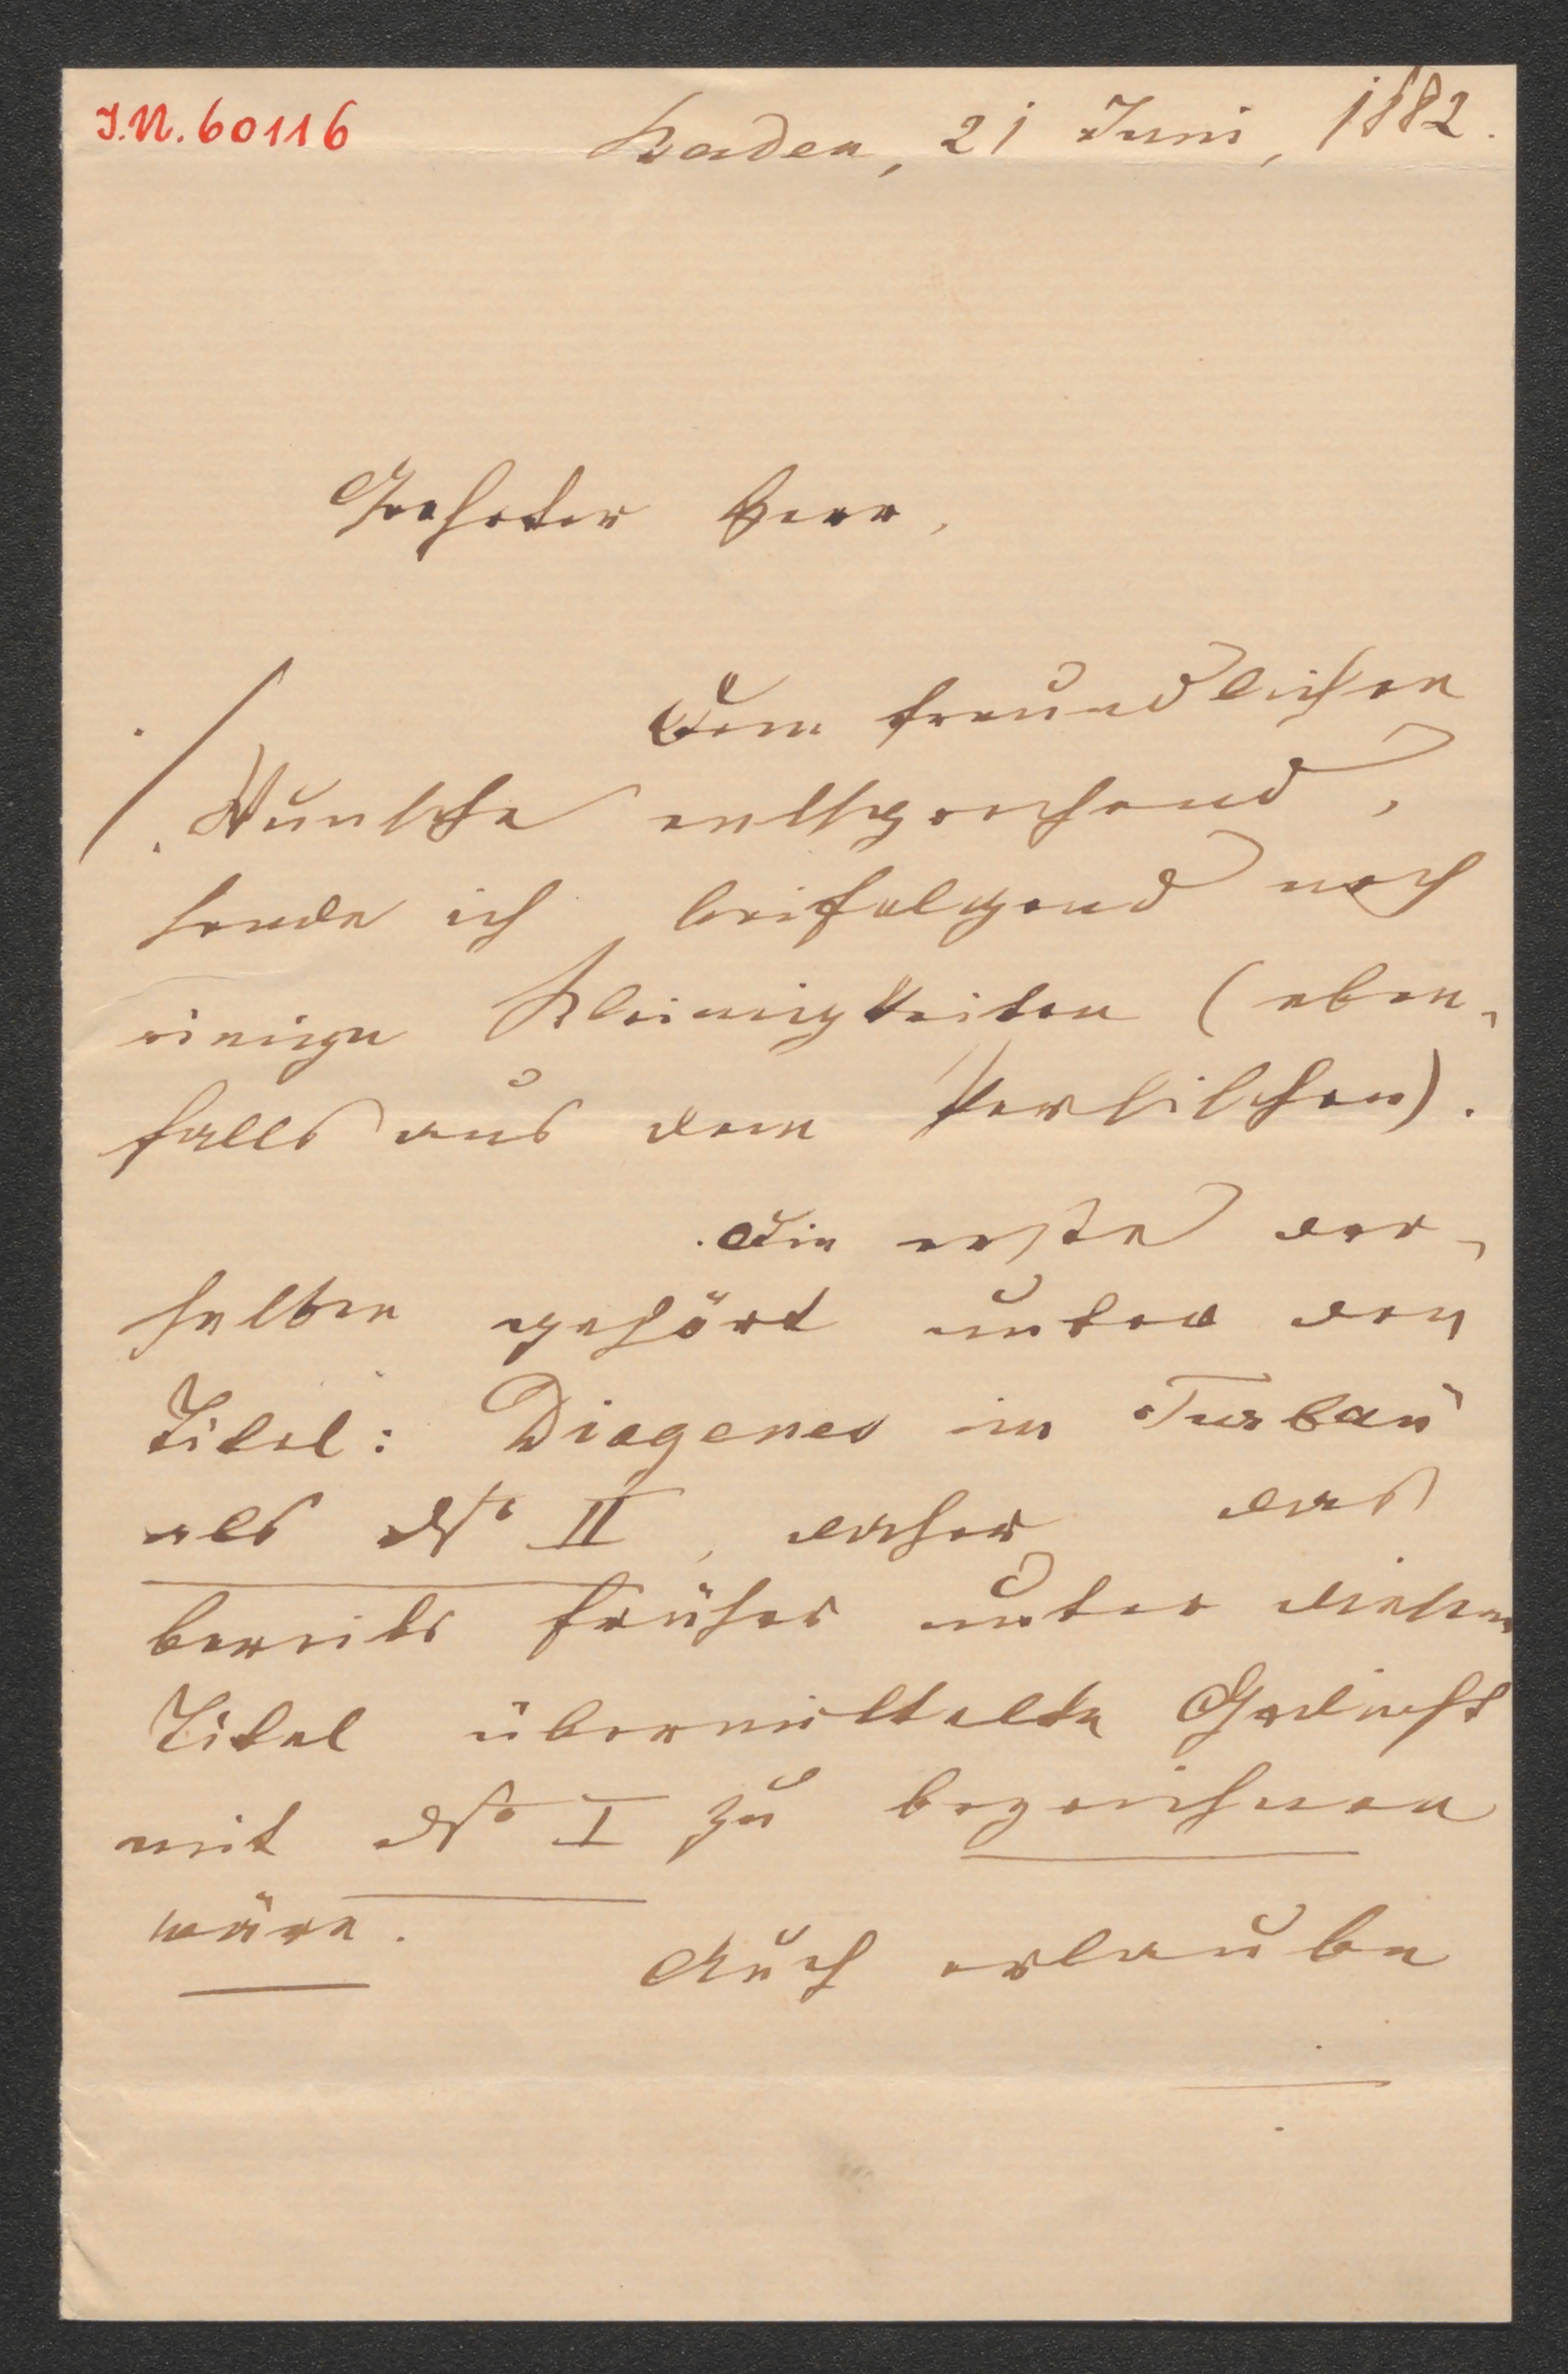 I.N. 60116
Baden, 21 Juni, 1882.
Geehrter Herr,
Dem freundlichen
Wunsche entsprechend,
sende ich beifolgend noch
einige Kleinigkeiten (eben-
falls aus dem Persischen).
Die erste der-
selben gehört unter den
Titel: Diogenes im Turban
als No II, daher das
bereits früher unter diesem
Titel übermittelte Gedicht
mit No I zu bezeichnen
wäre.
Auch erlaube